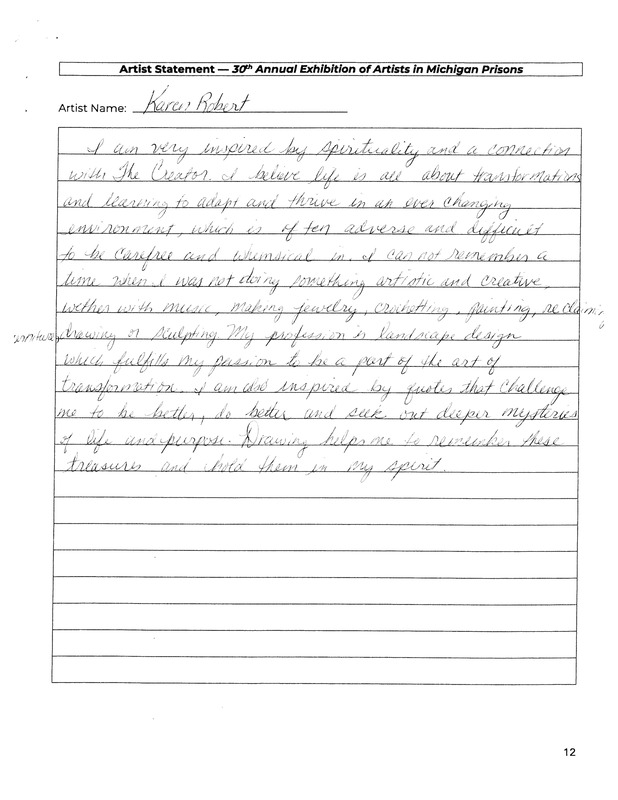 Artist Statement — 30th Annual Exhibition of Artists in Michigan Prisons
Artist Name: Karen Robert
I am very inspired by spirituality and a connection
with The Creator. I believe life is all about transformations
and learning to adapt and thrive in an ever changing
environment, which is often adverse and difficult
to be carefree and whimsical in. I can not remember a
time when I was not doing something artistic and creative,
wether with music, making jewelry, crochetting, painting, reclaim
furniture, drawing or sculpting My profession is landscape design
which fulfills my passion to be a part of the art of
transformation. I am also inspired by quotes that challenge
me to be better, do better and seek out deeper mysteries
of life and purpose. Drawing helps me to remember these
treasures and hold them in my spirit.
12